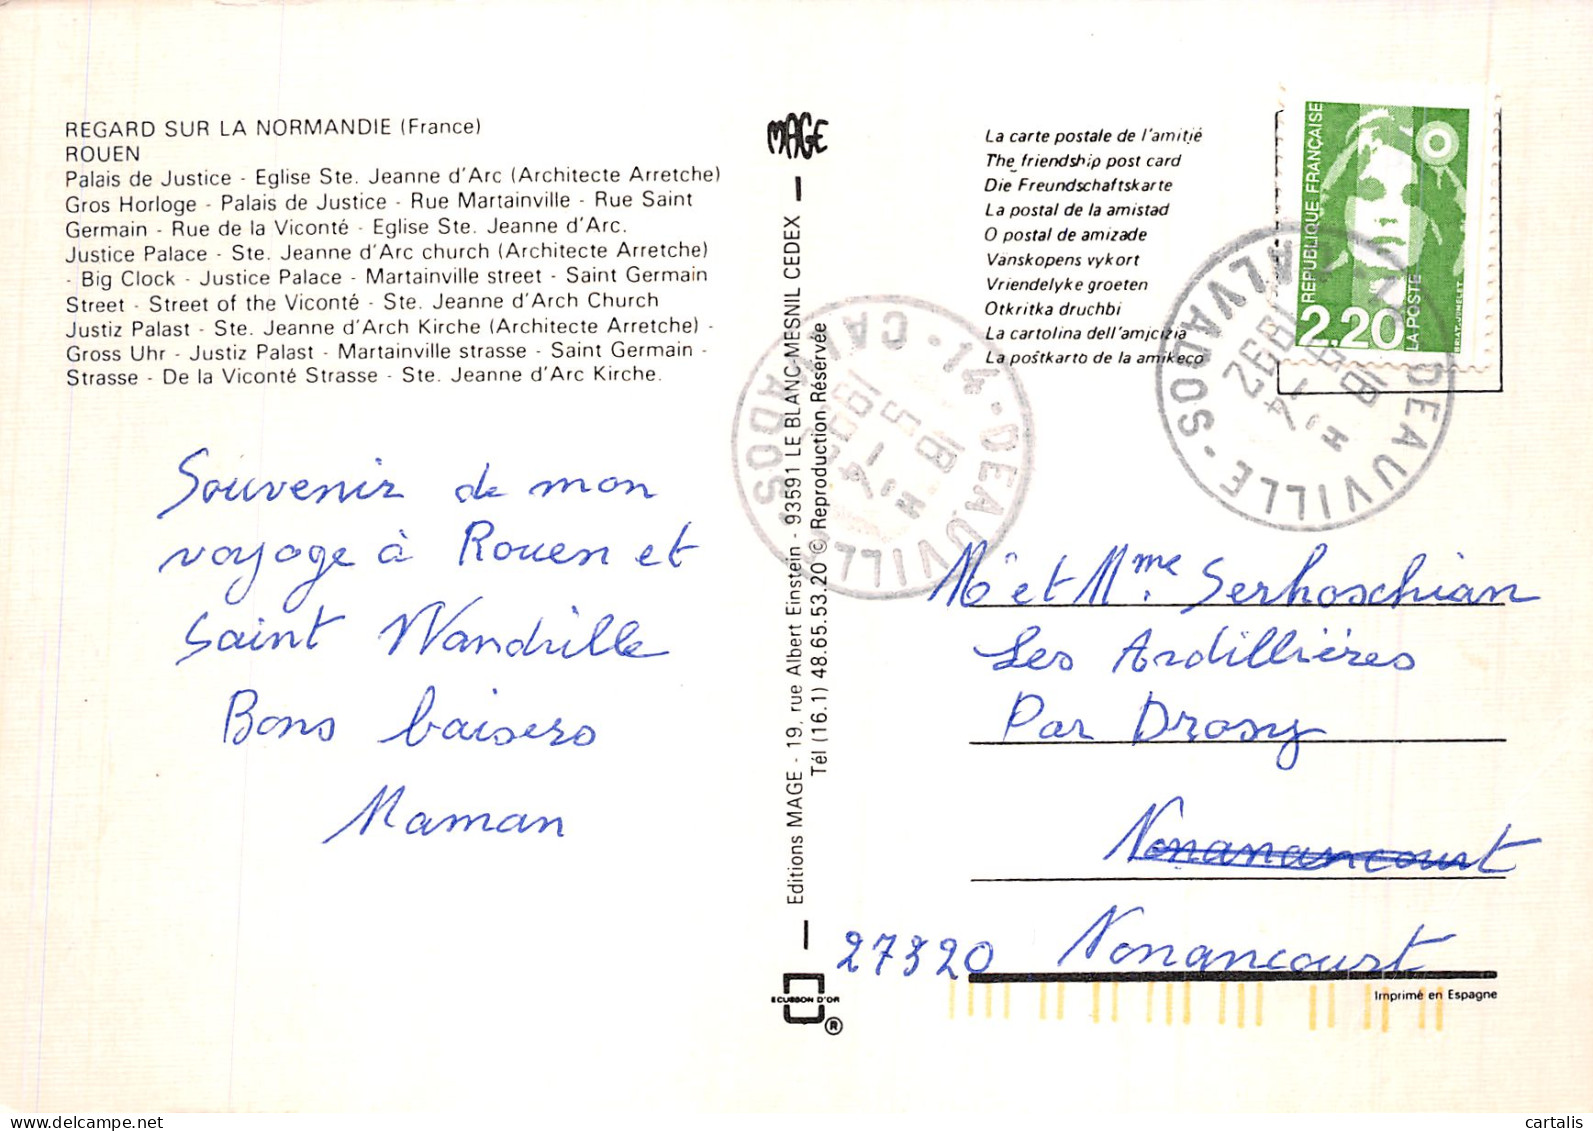 REGARD SUR LA NORMANDIE (France)
ROUEN
Palais de Justice - Eglise Ste. Jeanne d'Arc (Architecte Arretche)
Gros Horloge - Palais de Justice - Rue Martainville - Rue Saint
Germain - Rue de la Viconté - Eglise Ste. Jeanne d'Arc.
Justice Palace - Ste. Jeanne d'Arc church (Architecte Arretche)
- Big Clock - Justice Palace - Martainville street - Saint Germain
Street - Street of the Viconté - Ste. Jeanne d'Arch Church
Justiz Palast - Ste. Jeanne d'Arch Kirche (Architecte Arretche) -
Gross Uhr - Justiz Palast - Martainville strasse - Saint Germain -
Strasse - De la Viconté Strasse - Ste. Jeanne d'Arc Kirche.
Souvenir de mon
voyage à Rouen et
Saint Wandrille
Bons baisers
Maman
MAGE
Editions MAGE - 19, rue Albert Einstein - 93591 LE BLANC-MESNIL CEDEX
Tél (16.1) 48.65.53.20 © Reproduction Réservée
ECUSSON D'OR
®
La carte postale de l'amitié
The friendship post card
Die Freundschaftskarte
La postal de la amistad
O postal de amizade
Vanskopens vykort
Vriendelyke groeten
Otkritka druchbi
La cartolina dell'amicizia
La poŝtkarto de la amikeco
REPUBLIQUE FRANÇAISE
2,20
LA POSTE
BRIAT-JUMELET
14 · DEAUVILLE · CALVADOS
DEAUVILLE · CALVADOS
Mr et Mme Serhoschian
Les Ardillières
Par Drosny
Nonanancourt
27320 Nonancourt
Imprimé en Espagne
cartalis
www.delcampe.net